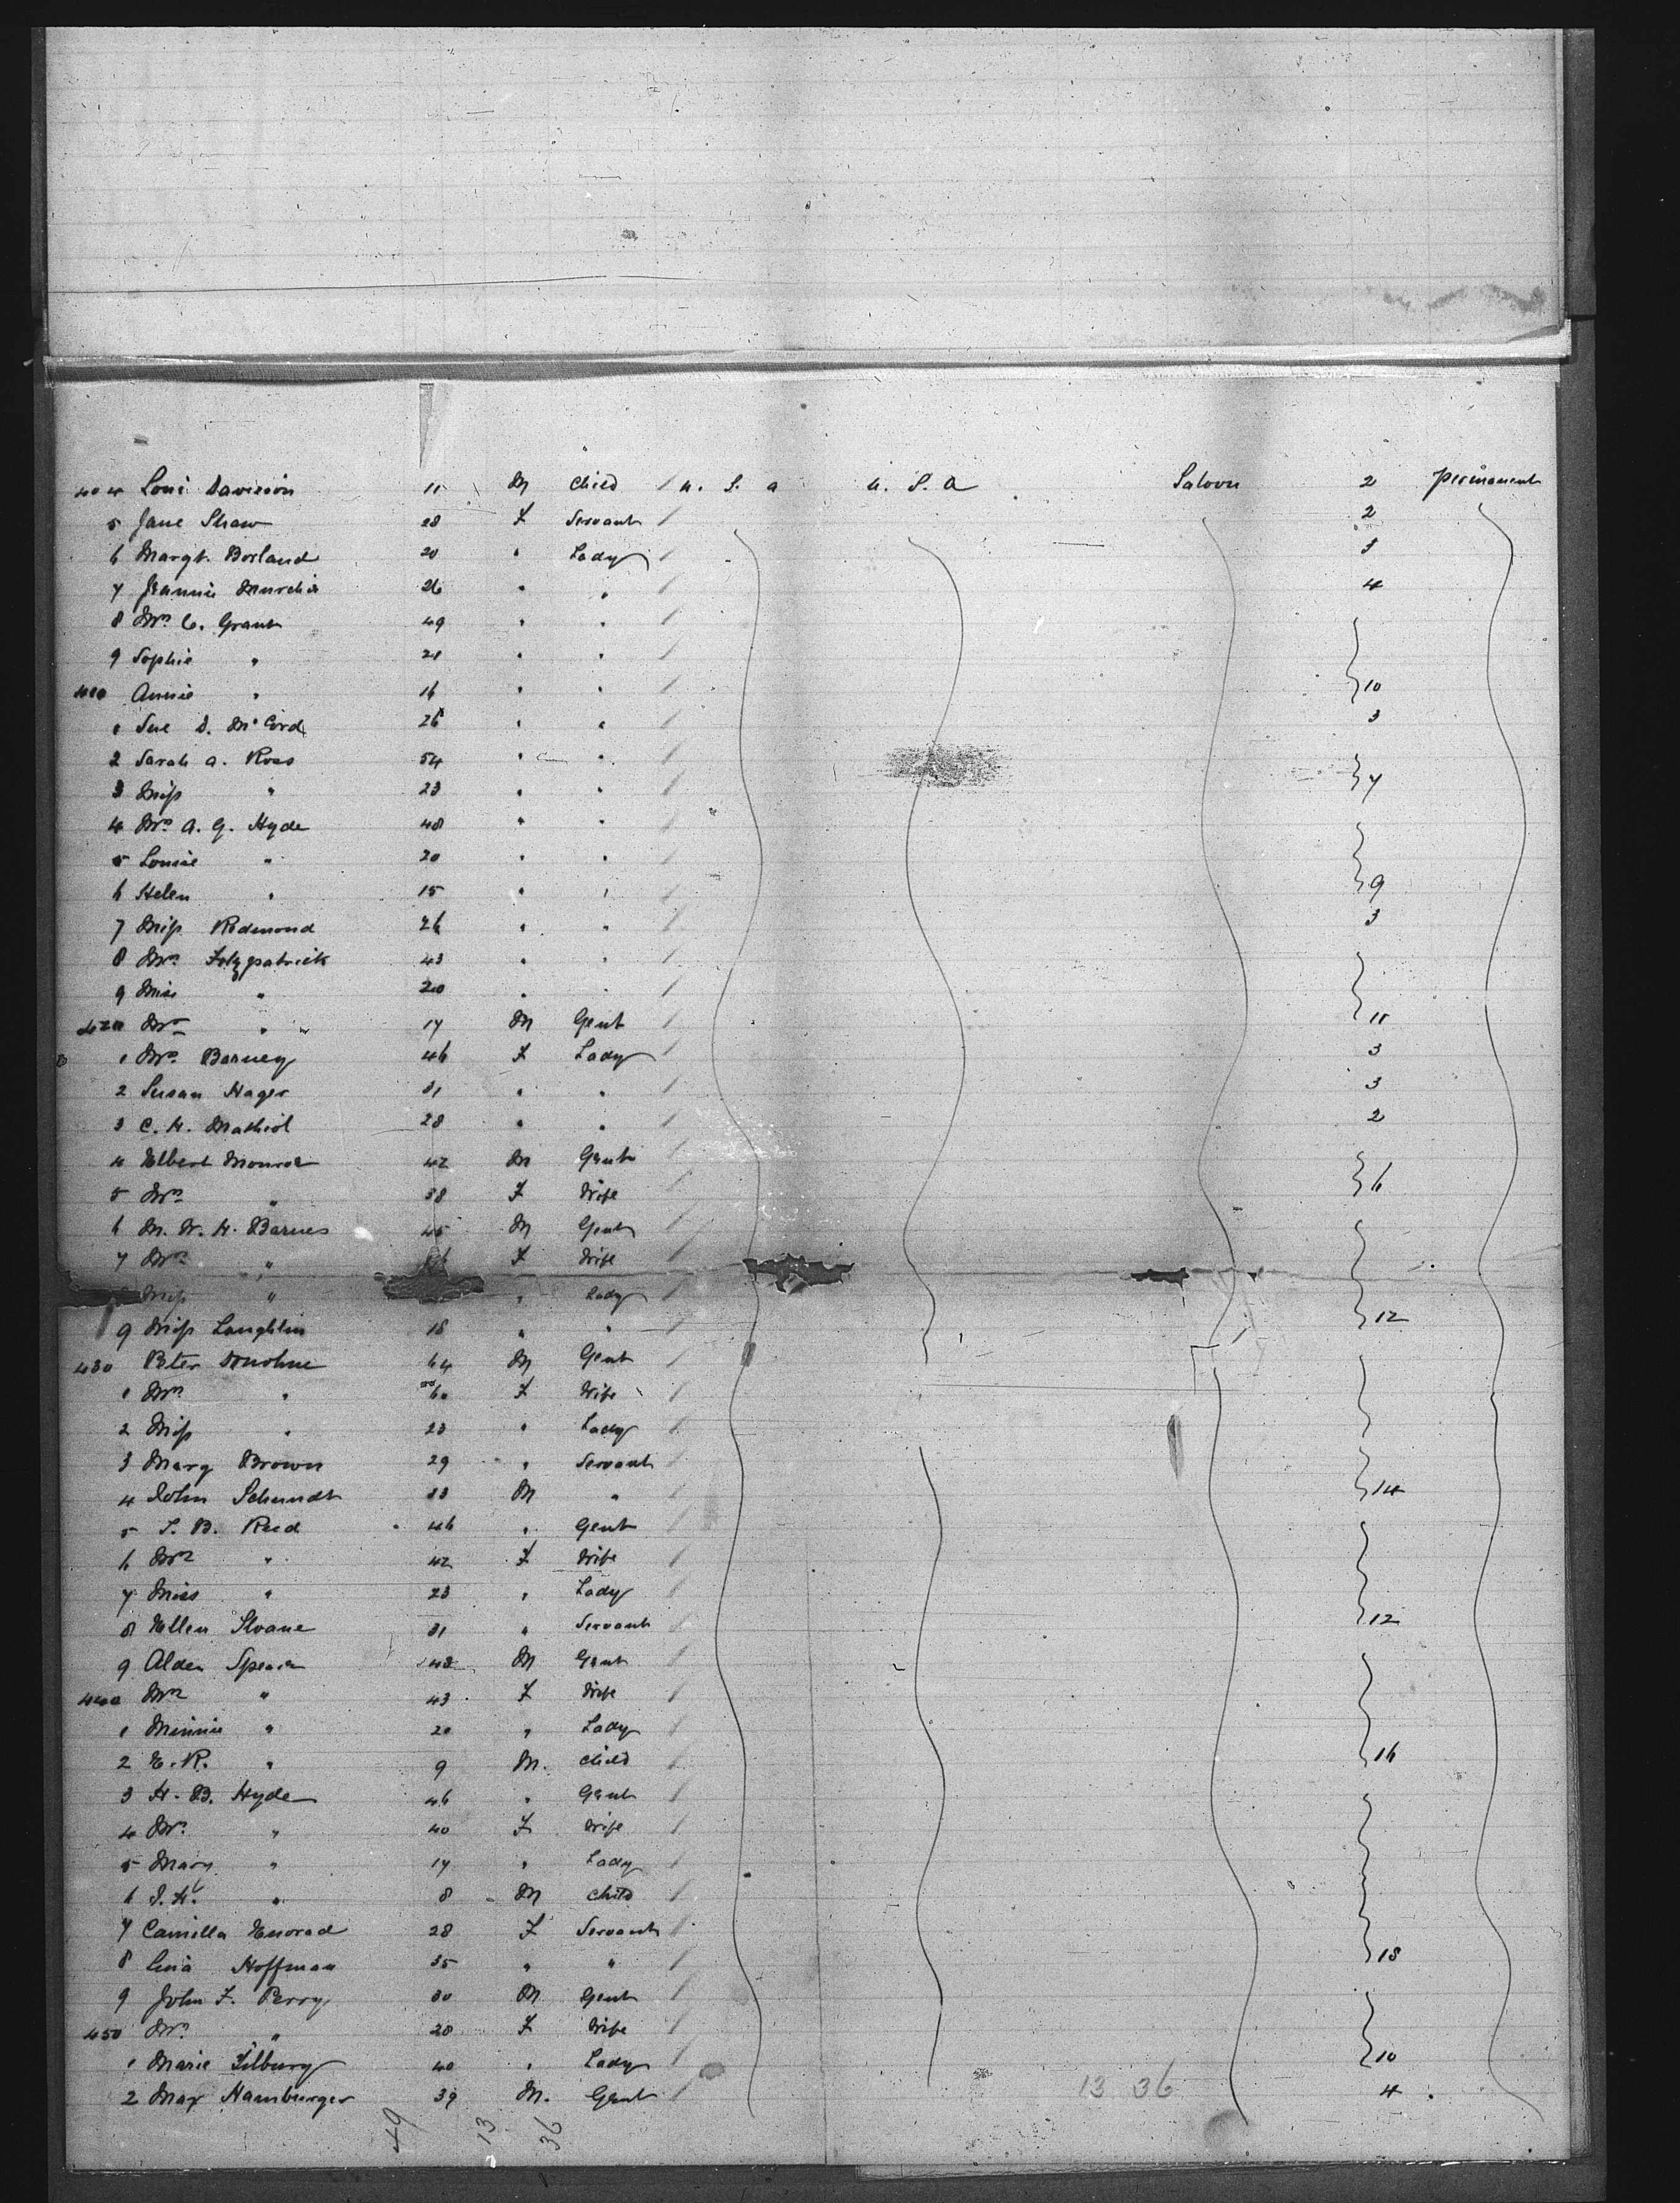 404 Loui Davision 11 M Child U. S. a U. S. a Saloon 2 permanent
5 Jane Shaw 28 F Servant 2
6 Margt. Borland 20 " Lady 3
7 Jeannie Murchie 26 " " 4
8 Mrs C. Grant 49 " "
9 Sophie " 21 " "
410 Annie " 16 " " 10
1 Sue D. McCord 26 " " 3
2 Sarah a. Ross 54 " "
3 Miss " 23 " " 7
4 Mrs A. G. Hyde 48 " "
5 Louise " 20 " "
6 Helen " 15 " " 9
7 Miss Redmond 26 " " 3
8 Mrs Fitzpatrick 43 " "
9 Miss " 20 " "
420 Mr " 17 M Gent 11
1 Mrs Barney 46 F Lady 3
2 Susan Hager 31 " " 3
3 C. H. Mathiot 28 " " 2
4 Elbert Monroe 42 M Gent
5 Mrs " 38 F Wife 6
6 M. W. H. Barnes 45 M Gent
7 Mrs " F Wife
Miss " " Lady
9 Miss Laughlin 18 " " 12
430 Peter Donohue 64 M Gent
1 Mrs " 60 F Wife
2 Miss " 23 " Lady
3 Marg Brown 29 " Servant
4 John Schmidt 33 M " 14
5 S. B. Reed 46 " Gent
6 Mrs " 42 F Wife
7 Miss " 23 " Lady
8 Ellen Sloane 31 " Servant 12
9 Alden Speare 48 M Gent
440 Mrs " 43 F Wife
1 Minnie " 20 " Lady
2 E. R. " 9 M. Child 16
3 H. B. Hyde 46 " Gent
4 Mrs " 40 F Wife
5 Mary " 17 " Lady
6 J. H. " 8 M Child
7 Camilla 28 F Servant
8 Hoffman 35 " " 18
9 John F. Perry 30 M Gent
450 Mrs " 28 F Wife
1 Marie Tilburg 40 " Lady 10
2 Max Hamburger 39 M. Gent 4
13 36
49 13 36